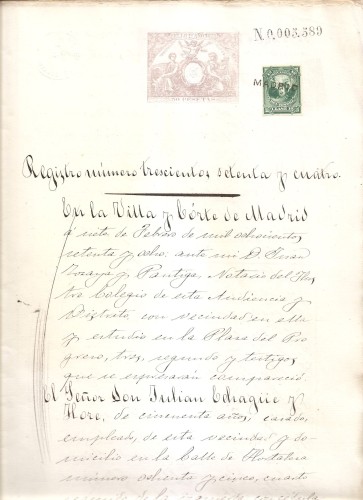 N.0.003.389
MADRID
Registro número trescientos setenta y cuatro.
En la Villa y Córte de Madrid
á siete de Febrero de mil ochocientos
setenta y ocho, ante mi D. Juan
Zozaya y Pantiga, Notario del Ilus
tre Colegio de esta Audiencia y
Distrito con vecindad en ella
y estudio en la Plaza del Pro
greso, tres, segundo y testigos
que se espresarán compareció
El Señor Don Julian Echagüe y
More, de cincuenta años, casado,
empleado, de esta vecindad y do-
micilio en la Calle de Hortaleza
número ochenta y cinco, cuarto